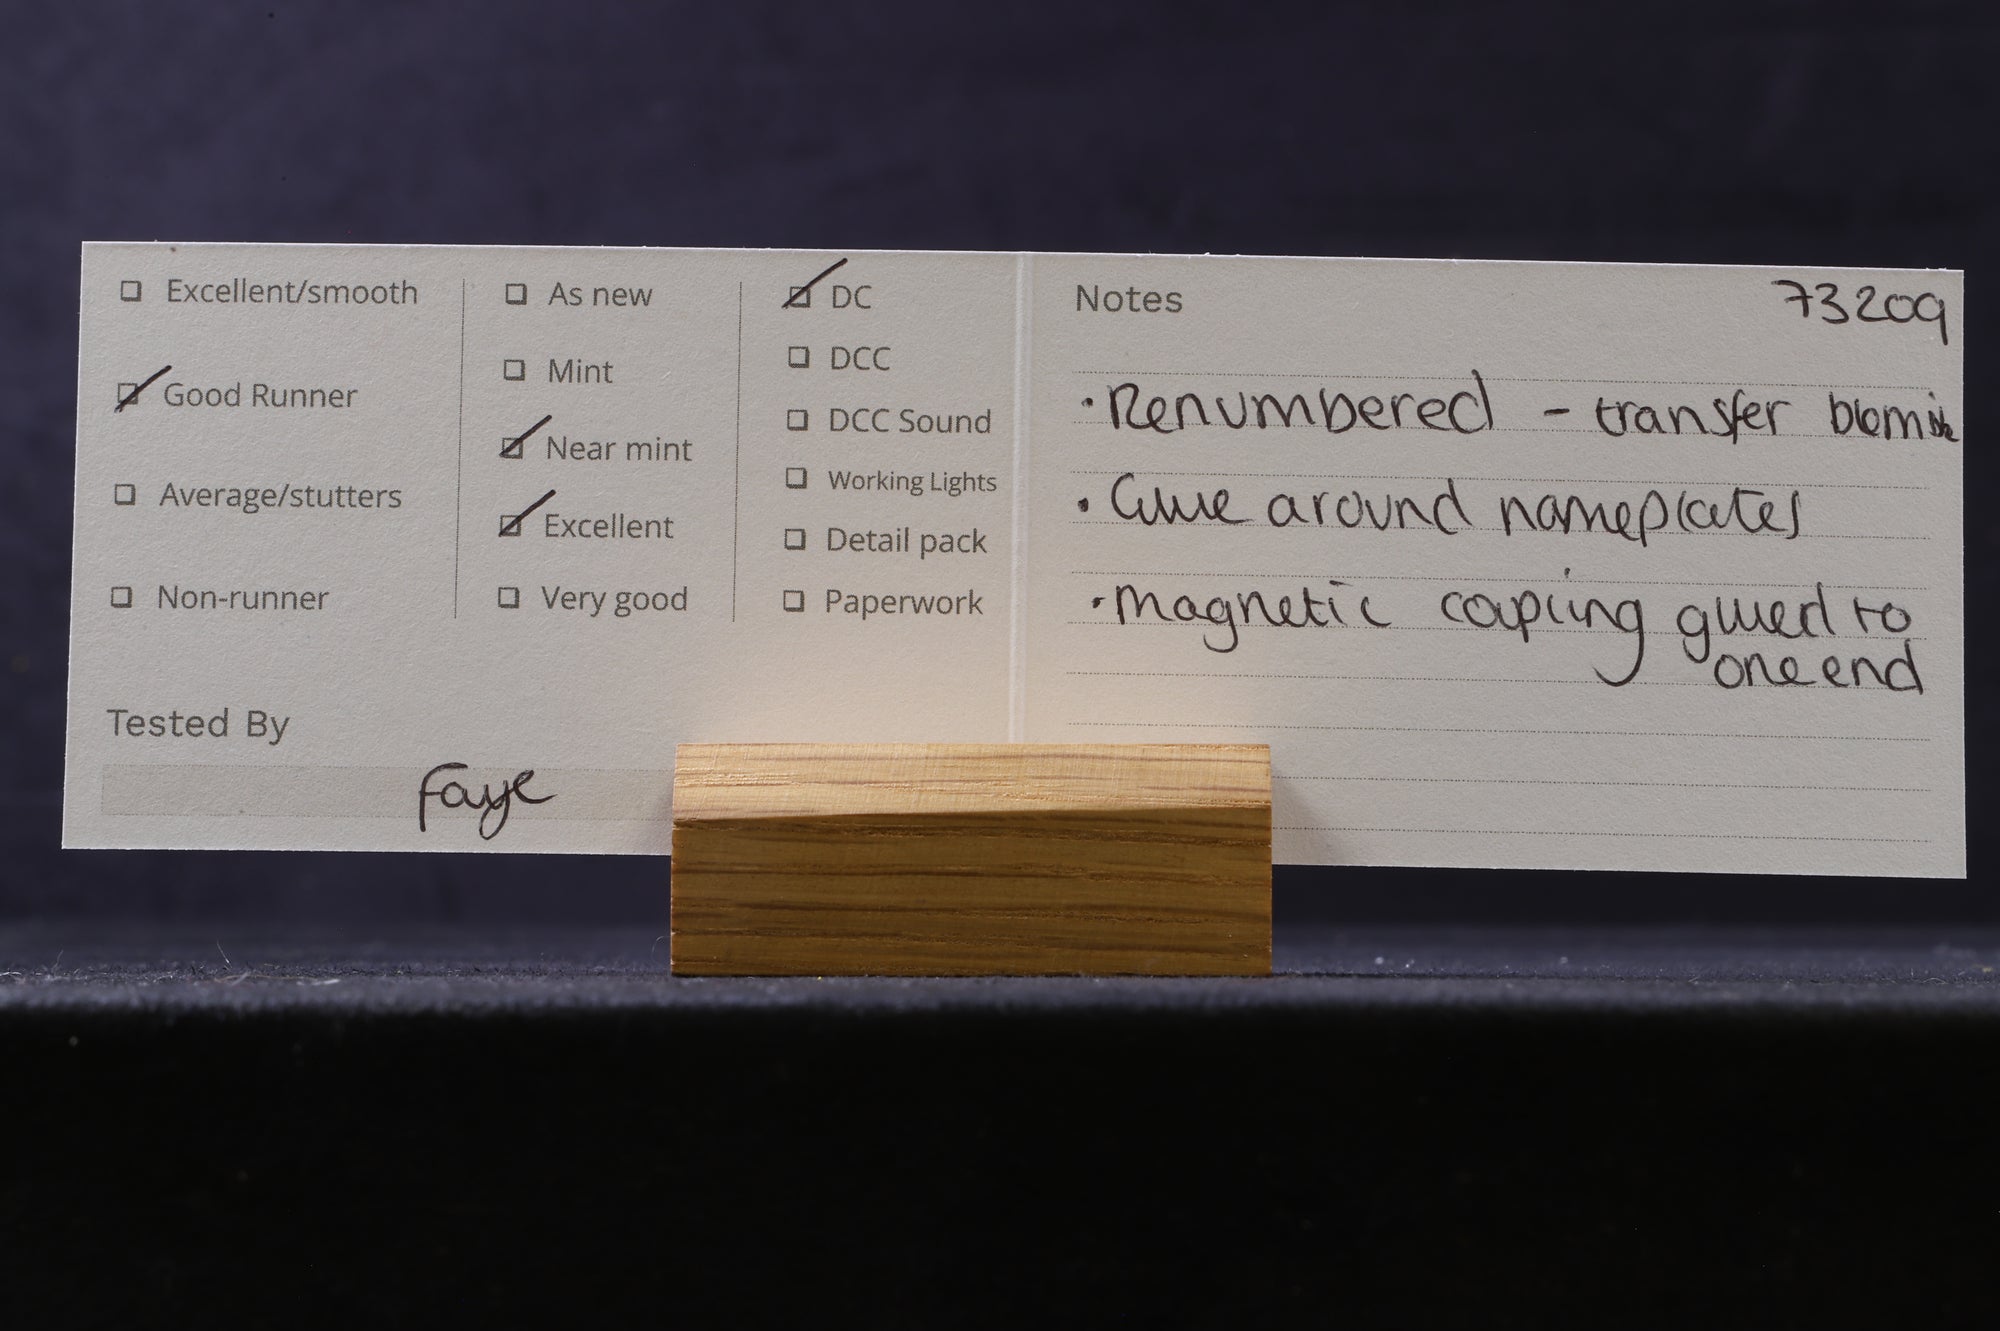 Excellent/smooth
Good Runner
Average/stutters
Non-runner
As new
Mint
Near mint
Excellent
Very good
DC
DCC
DCC Sound
Working Lights
Detail pack
Paperwork
Tested By
Faye
Notes
73209
• Renumbered - transfer blemish
• Glue around nameplates
• magnetic coupling glued to
one end